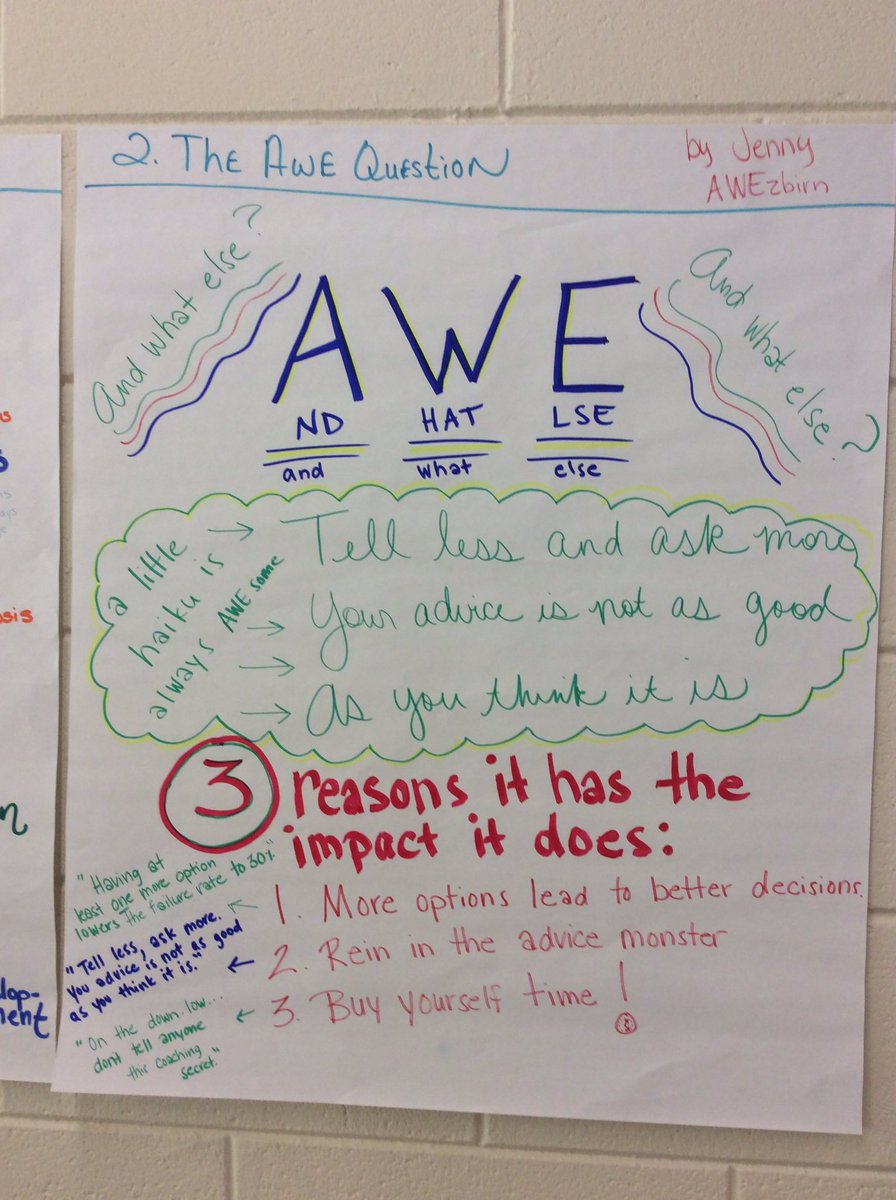 2. The AWE Question
by Jenny
AWEzbirn
And what else?
And what else?
A W E
ND HAT LSE
and what else
a little
haiku is
always AWE some
→ Tell less and ask more
→ Your advice is not as good
→
→ As you think it is
3 reasons it has the
impact it does:
1. More options lead to better decisions.
2. Rein in the advice monster
3. Buy yourself time!
"Having at
least one more option
lowers the failure rate to 30%"
"Tell less, ask more.
you advice is not as good
as you think it is."
"On the down low...
dont tell anyone
this coaching
secret."
s
sis
n
lop-
ment